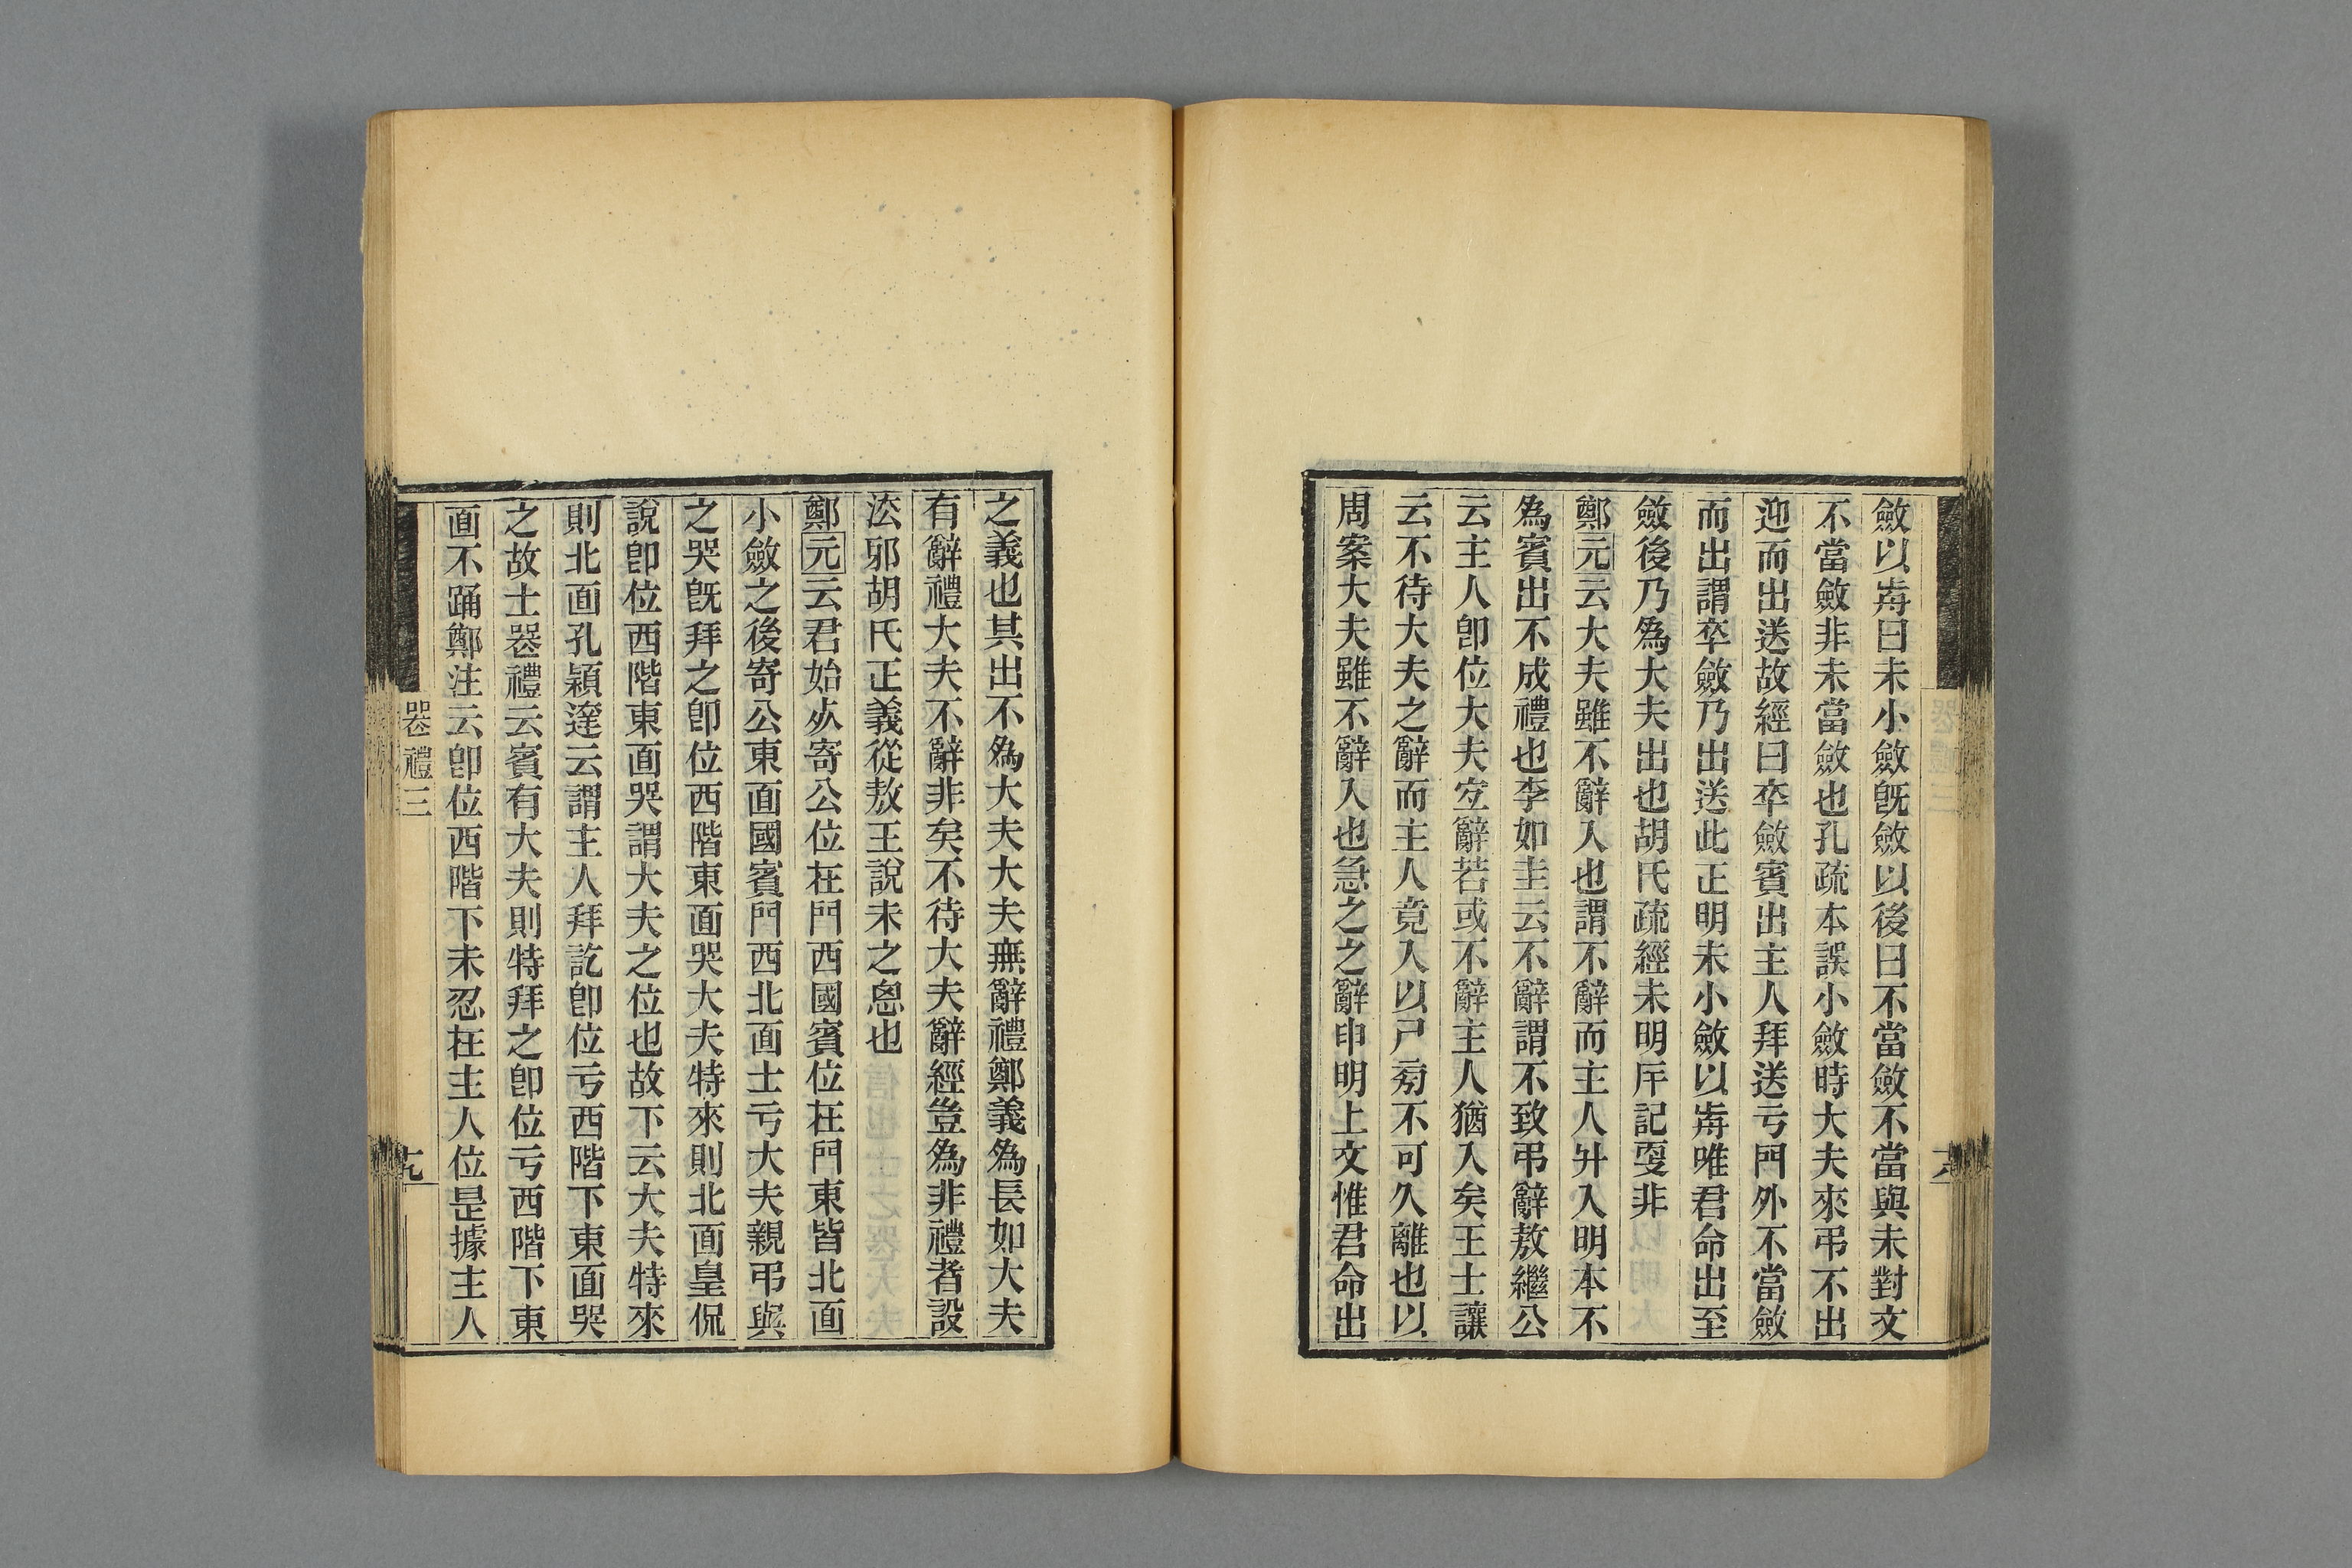 斂以歬曰未小斂旣斂以後曰不當斂不當與未對文
不當斂非未當斂也孔疏本誤小斂時大夫來弔不出
迎而出送故經曰卒斂賓出主人拜送亏門外不當斂
而出謂卒斂乃出送此正明未小斂以歬唯君命出至
斂後乃爲大夫出也胡氏疏經未明厈記㪅非
鄭元云大夫雖不辭入也謂不辭而主人升入明本不
爲賓出不成禮也李如圭云不辭謂不致弔辭敖繼公
云主人卽位大夫㝎辭若或不辭主人猶入矣王士讓
云不待大夫之辭而主人竟入以尸㫄不可久離也以
周案大夫雖不辭入也急之之辭申明上文惟君命出
之義也其出不爲大夫大夫無辭禮鄭義爲長如大夫
有辭禮大夫不辭非矣不待大夫辭經豈爲非禮者設
㳒邪胡氏正義從敖王說未之恖也
鄭元云君始㱑寄公位在門西國賓位在門東皆北面
小斂之後寄公東面國賓門西北面士亏大夫親弔與
之哭旣拜之卽位西階東面哭大夫特來則北面皇侃
說卽位西階東面哭謂大夫之位也故下云大夫特來
則北面孔穎達云謂主人拜訖卽位亏西階下東面哭
之故士喪禮云賓有大夫則特拜之卽位亏西階下東
面不踊鄭注云卽位西階下未忍在主人位是據主人
喪禮三
十九